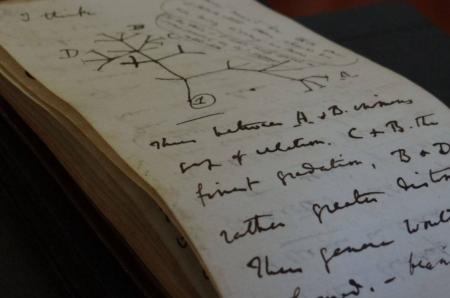 I think
B
D
C
A
1
Thus between A & B. immens
gap of relation. C & B. the
finest gradation, B & D
rather greater distin
Thus genera would
formed. - bear